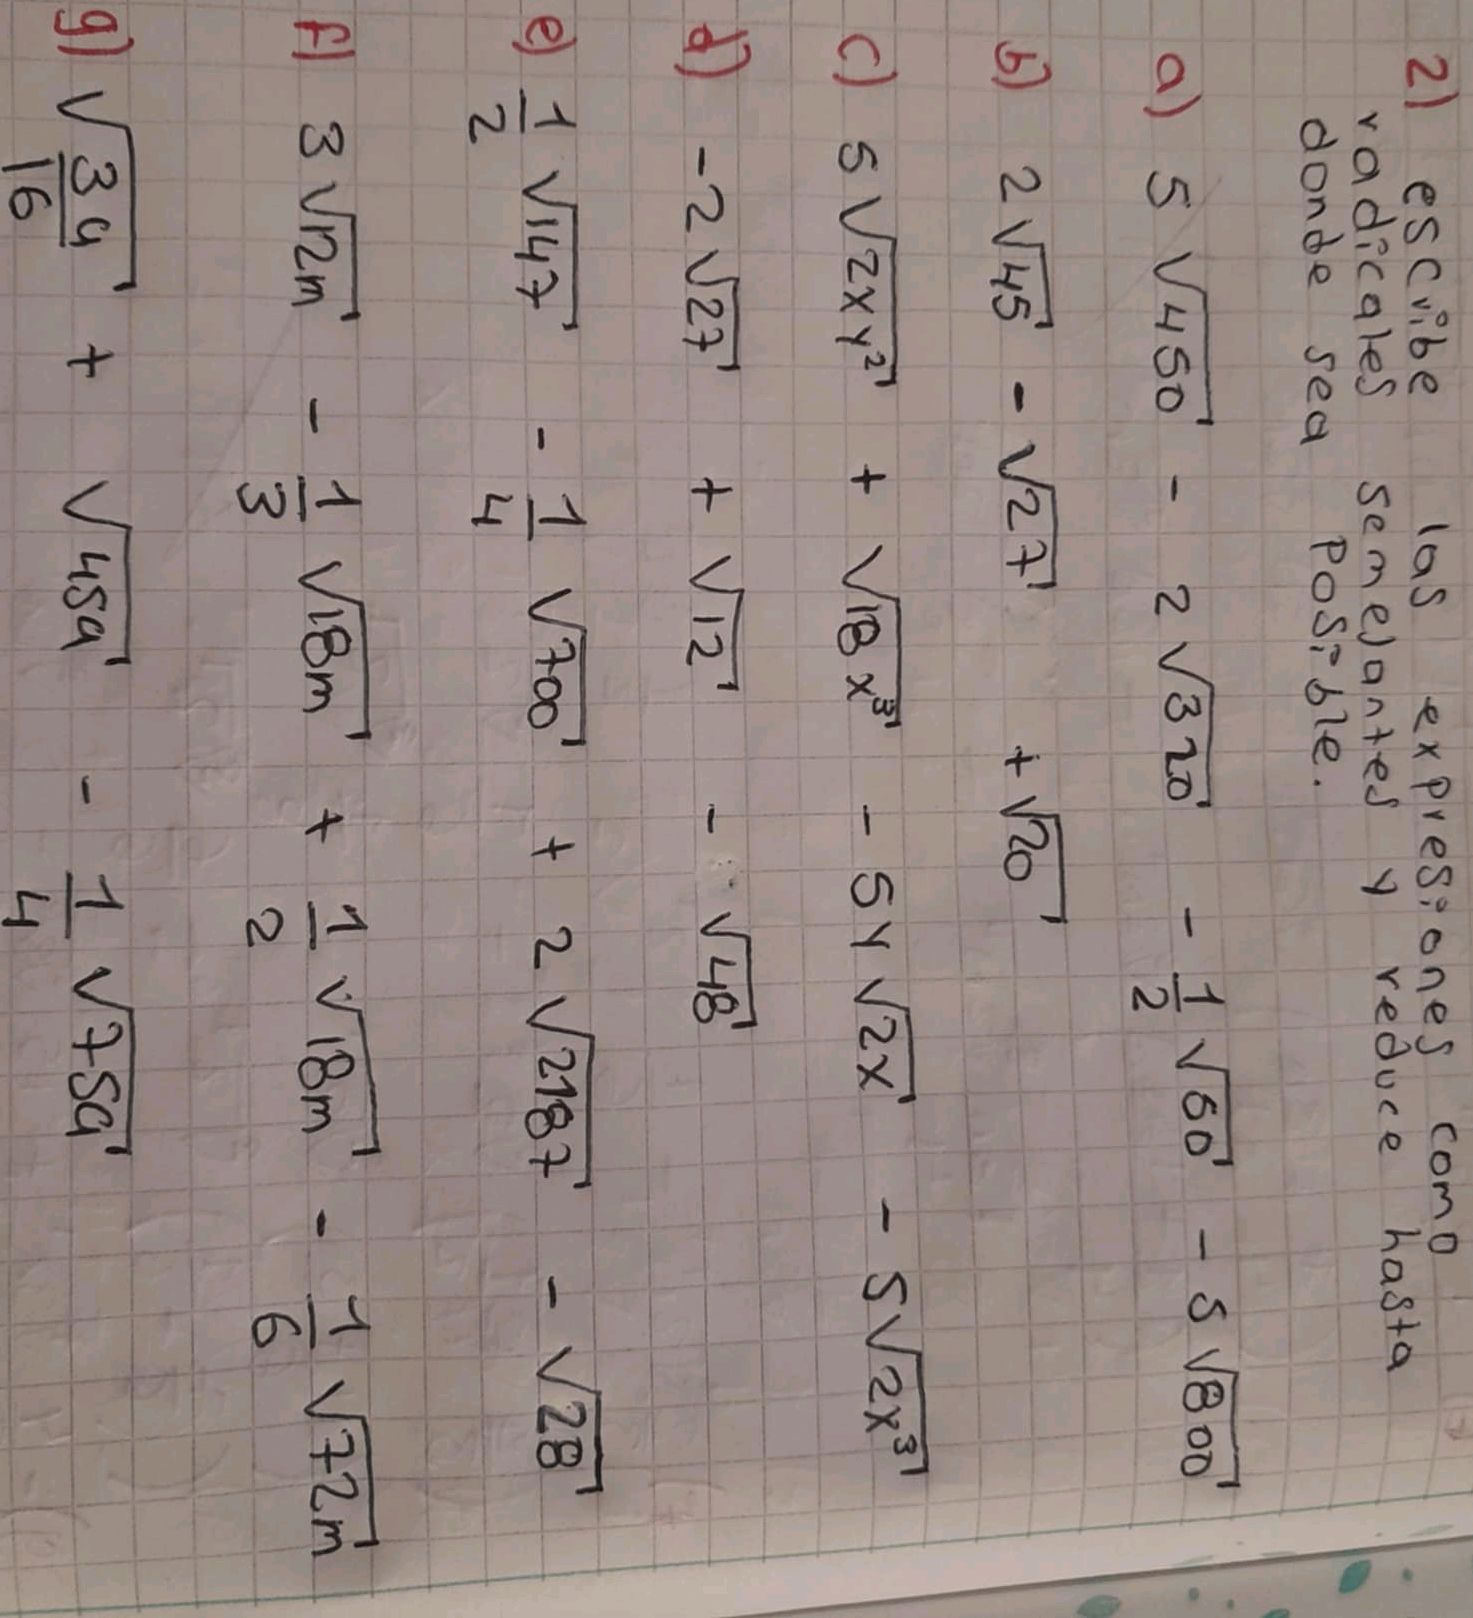 2) escribe las expresiones como
radicales semejantes y reduce hasta
donde sea posible.
a) 5√450 - 2√320 - 1/2 √50 - 5√800
b) 2√45 - √27 + √20
c) 5√2xy² + √18x³ - 5y√2x - 5√2x³
d) -2√27 + √12 - √48
e) 1/2 √147 - 1/4 √700 + 2√2187 - √28
f) 3√12m - 1/3 √18m + 1/2 √18m - 1/6 √72m
g) √3a/16 + √45a - 1/4 √75a